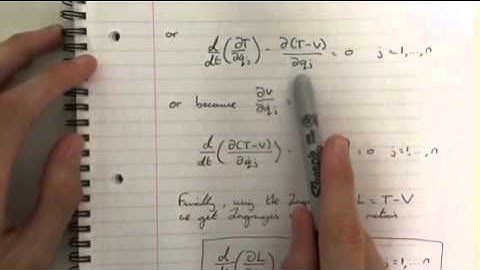 or
d/dt(∂T/∂q̇j) - ∂(T-V)/∂qj = 0 j=1,...,n
or because ∂V/∂q̇j =
d/dt(∂(T-V)/∂q̇j) - = 0 j=1,...,n
Finally, using the L = T-V
we get Lagranges
d/dt(∂L
Sharpie